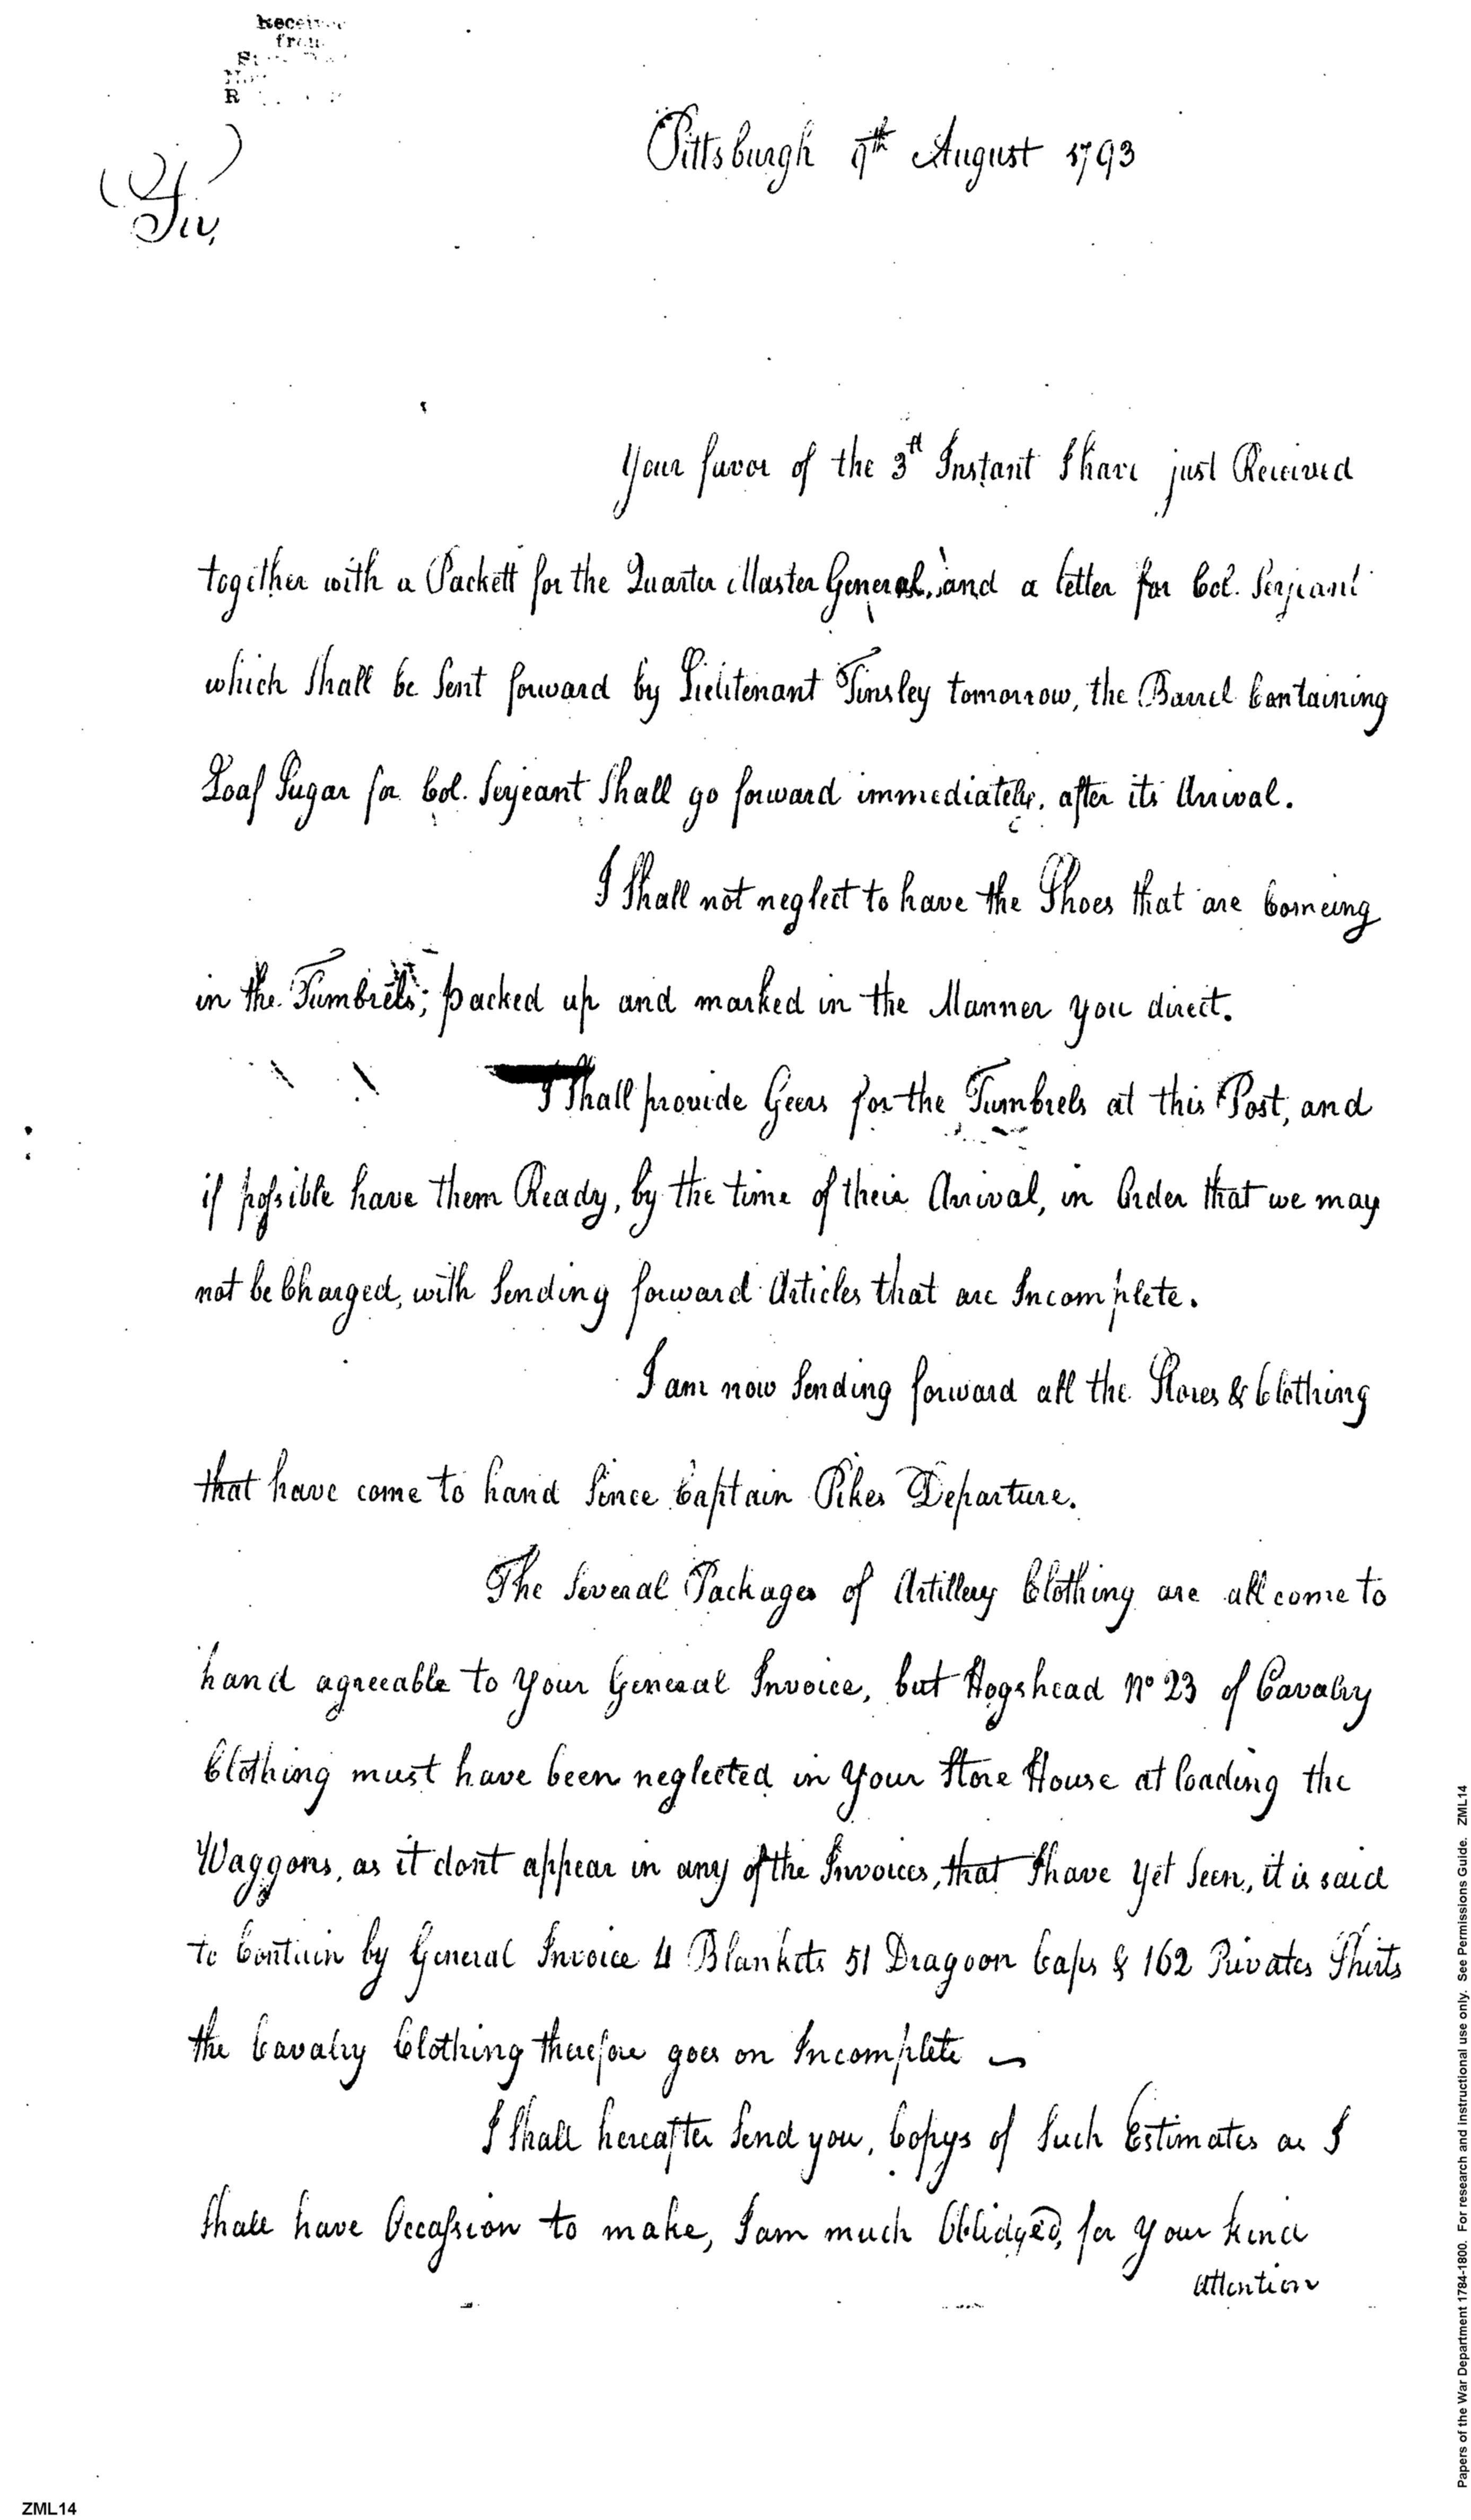 Received
from
Pittsburgh 9th August 1793
Sir,
Your favor of the 3d Instant I have just Received
together with a Packett for the Quarter Master General, and a letter for Col. Serjeant
which Shall be Sent forward by Lieutenant Tinsley tomorrow, the Barrel Containing
Loaf Sugar for Col. Serjeant Shall go forward immediately, after its Arrival.
I Shall not neglect to have the Shoes that are Comeing
in the Tumbrels; packed up and marked in the Manner you direct.
I Shall provide Geers for the Tumbrels at this Post, and
if possible have them Ready, by the time of their Arrival, in Order that we may
not be Charged, with Sending forward Articles that are Incomplete.
I am now Sending forward all the Stores & Clothing
that have come to hand Since Captain Pikes Departure.
The Several Packages of Artillery Clothing are all come to
hand agreeable to Your General Invoice, but Hogshead No 23 of Cavalry
Clothing must have been neglected in Your Store House at loading the
Waggons, as it dont appear in any of the Invoices, that I have Yet Seen, it is said
to Contain by General Invoice 4 Blankets 51 Dragoon Caps & 162 Privates Shirts
the Cavalry Clothing therefore goes on Incomplete
I Shall hereafter Send you, Copys of Such Estimates as I
Shall have Occassion to make, I am much Oblidged, for Your kind
attention
Papers of the War Department 1784-1800. For research and instructional use only. See Permissions Guide. ZML14
ZML14